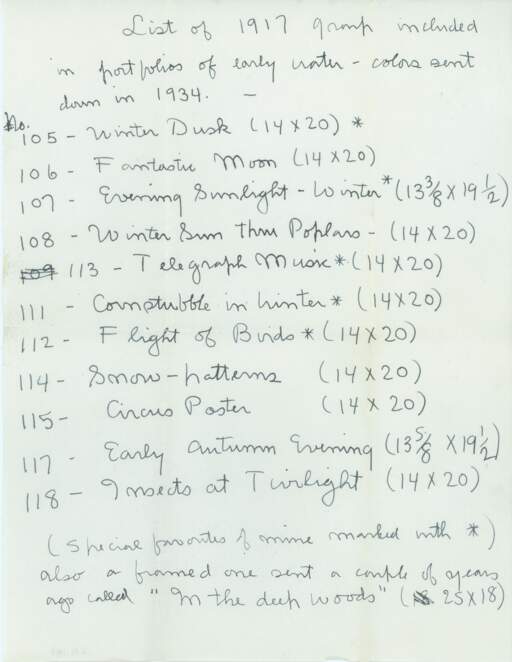 List of 1917 group included
in portfolios of early water-colors sent
down in 1934. —
No.
105 - Winter Dusk (14 X 20) *
106 - Fantastic Moon (14 X 20)
107 - Evening Sunlight - Winter * (13 3/8 X 19 1/2)
108 - Winter Sun thru Poplars - (14 X 20)
109 113 - Telegraph Music * (14 X 20)
111 - Cornstubble in Winter * (14 X 20)
112 - Flight of Birds * (14 X 20)
114 - Snow-patterns (14 X 20)
115 - Circus Poster (14 X 20)
117 - Early Autumn Evening (13 5/8 X 19 1/2)
118 - Insects at Twilight (14 X 20)
(special favorites of mine marked with *)
also a framed one sent a couple of years
ago called "In the deep woods" (25 X 18)